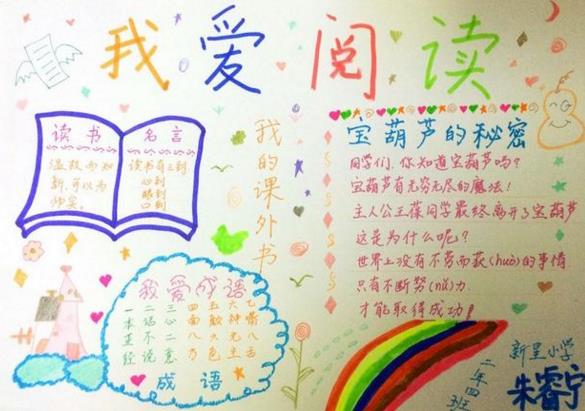 我爱阅读
读书
温故而知
新,可以为
师矣。
名言
读书有三到
心到
眼到
口到
我的课外书
宝葫芦的秘密
同学们,你知道宝葫芦吗?
宝葫芦有无穷无尽的魔法!
主人公王葆同学最终离开了宝葫芦
这是为什么呢?
世界上没有不劳而获(huò)的事情
只有不断努(nǔ)力
才能取得成功!
我爱成语
一 二 三 四 五 六 七
本 话 心 面 颜 神 嘴
正 不 二 八 六 无 八
经 说 意 方 色 主 舌
成 语
新星小学
二年四班
朱睿宁